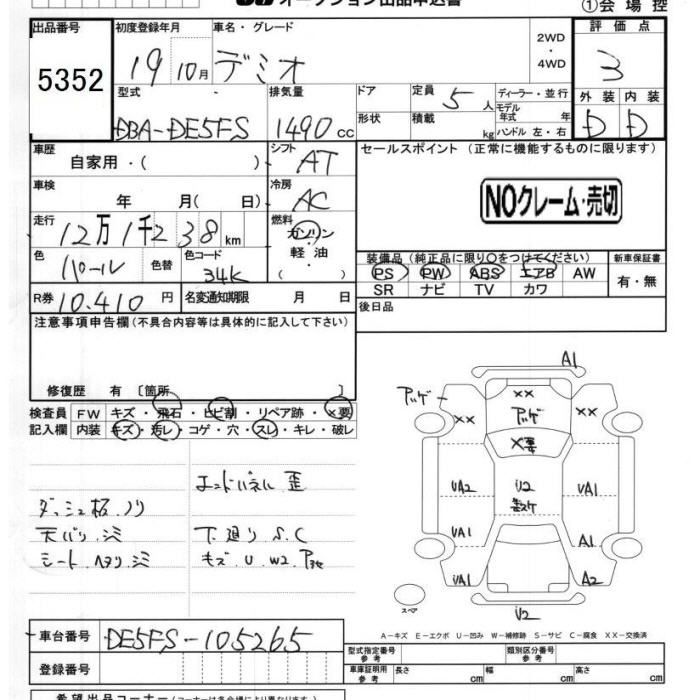 オークション出品申込書
①会場控
出品番号 初度登録年月 車名・グレード 2WD・4WD 評価点
5352 19 10月 デミオ 3
型式 排気量 ドア 定員 5人 ディーラー・並行 外装 内装
DBA-DE5FS 1490cc 形状 積載 kg モデル年式 年 ハンドル 左・右 D D
車歴 自家用・( ) シフト AT セールスポイント (正常に機能するものに限ります)
車検 年 月( 日) 冷房 AC NOクレーム・売切
走行 12万1千238km 燃料 ガソリン・軽油・( )
色 パール 色替 色コード 34K
装備品(純正品に限り○をつけてください) 新車保証書
PS PW ABS エアB AW 有・無
SR ナビ TV カワ
R券 10,410円 名変通知期限 月 日 後日品
注意事項申告欄(不具合内容等は具体的に記入して下さい)
修復歴 有 [箇所 ]
検査員 FW キズ・飛石・ヒビ割・リペア跡・×要
記入欄 内装 キズ・汚レ・コゲ・穴・スレ・キレ・破レ
エンドパネル 歪
ダッシュ板 ノリ
天バリ シミ 下廻り S.C
シート シミ キズ U W2
A1
アッゲ
XX XX XX
アッゲ
X要
UA2 U2 UA1
UA1 A1
UA1 A2
スペア
U2
A-キズ E-エクボ U-凹み W-補修跡 S-サビ C-腐食 XX-交換済
車台番号 DE5FS-105265
登録番号
型式指定番号 参考 類別区分番号 参考
車庫証明用 参考 長さ cm 幅 cm 高さ cm
希望出品コーナー